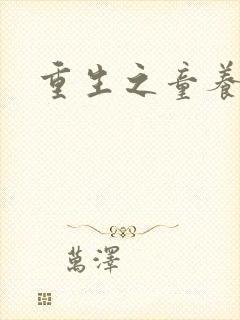 重生之童養
萬澤